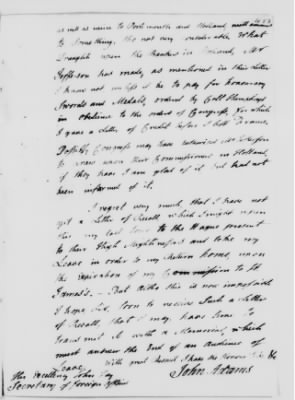 as well as some to Portsmouth and Holland, will amount
to something, tho not very considerable. What
Draughts upon the Bankers in Holland, Mr
Jefferson has made, as mentioned in this Letter
I know not unless it be to pay for honorary
Swords and Medals, ordered by Coll Humphreys
in obedience to the orders of Congress, for which
I gave a Letter of Credit before I left France.
Possibly Congress may have authorised Mr Jefferson
to draw upon their Commissioners in Holland,
if they have I am glad of it but had not
been informed of it.
I regret very much, that I have not
yet a Letter of Recall, which I might upon
this my last Tour to the Hague present
to their High Mightinesses and take my
Leave in order to my Return home, upon
the expiration of my Commission to St
James's. — But altho this is now impossible
I hope Sir, soon to receive such a Letter
of Recall, that I may have time to
transmit it with a Memorial, which
must answer the End of an Audience of
Leave.
With great Esteem I have the Honour to be &c
John Adams
His Excellency John Jay
Secretary of Foreign affairs